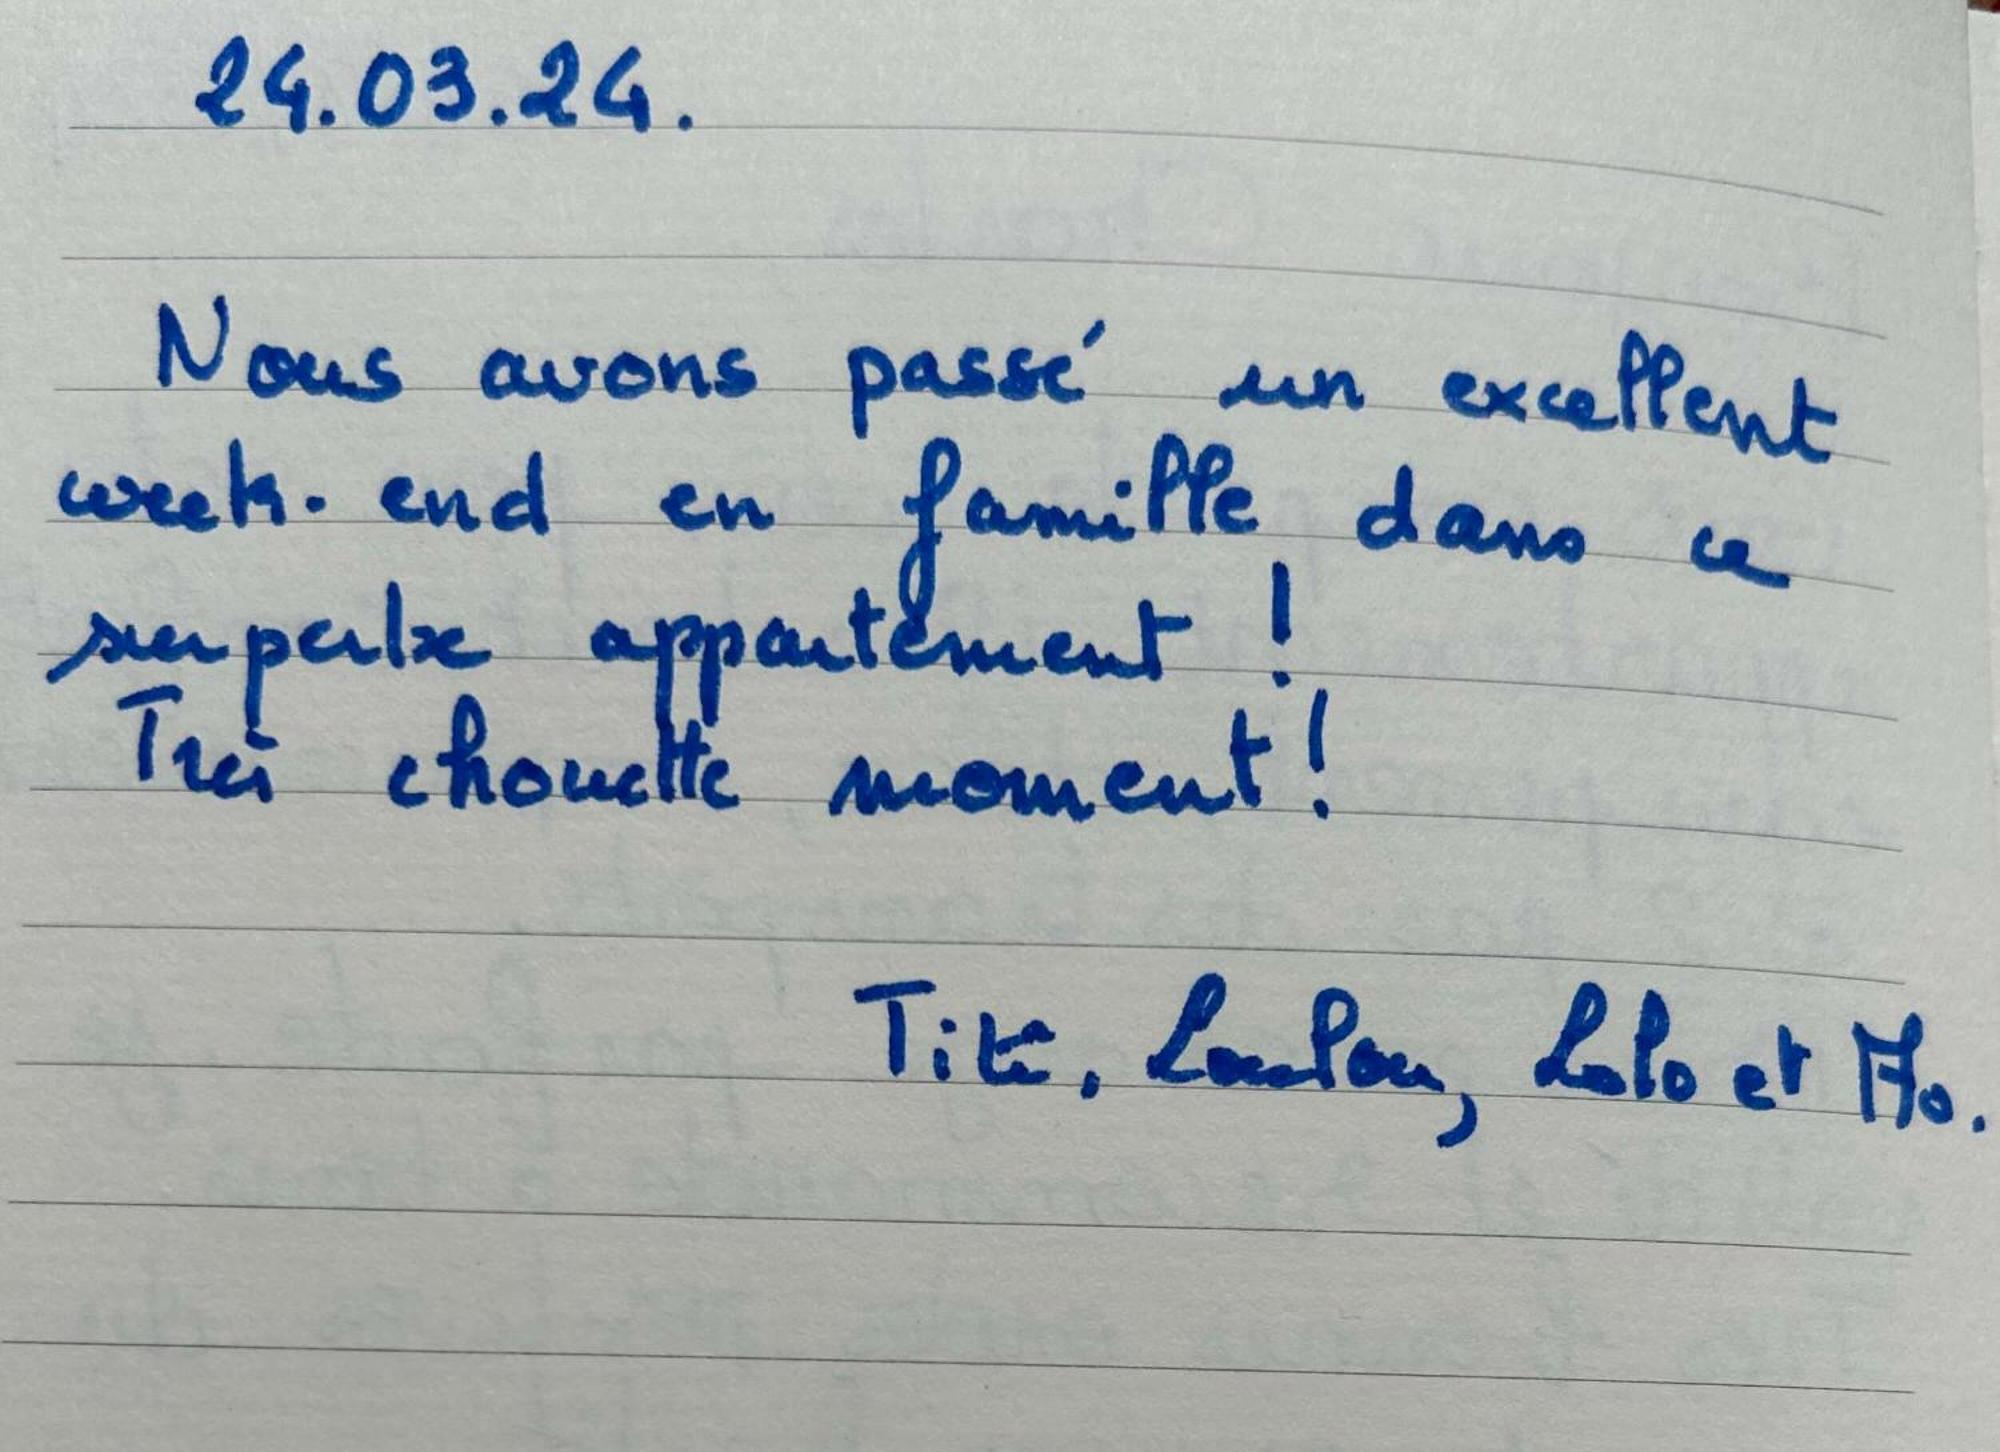 24.03.24.
Nous avons passé un excellent
week-end en famille dans ce
superbe appartement !
Très chouette moment !
Titi, Loulou, Lolo et Mo.